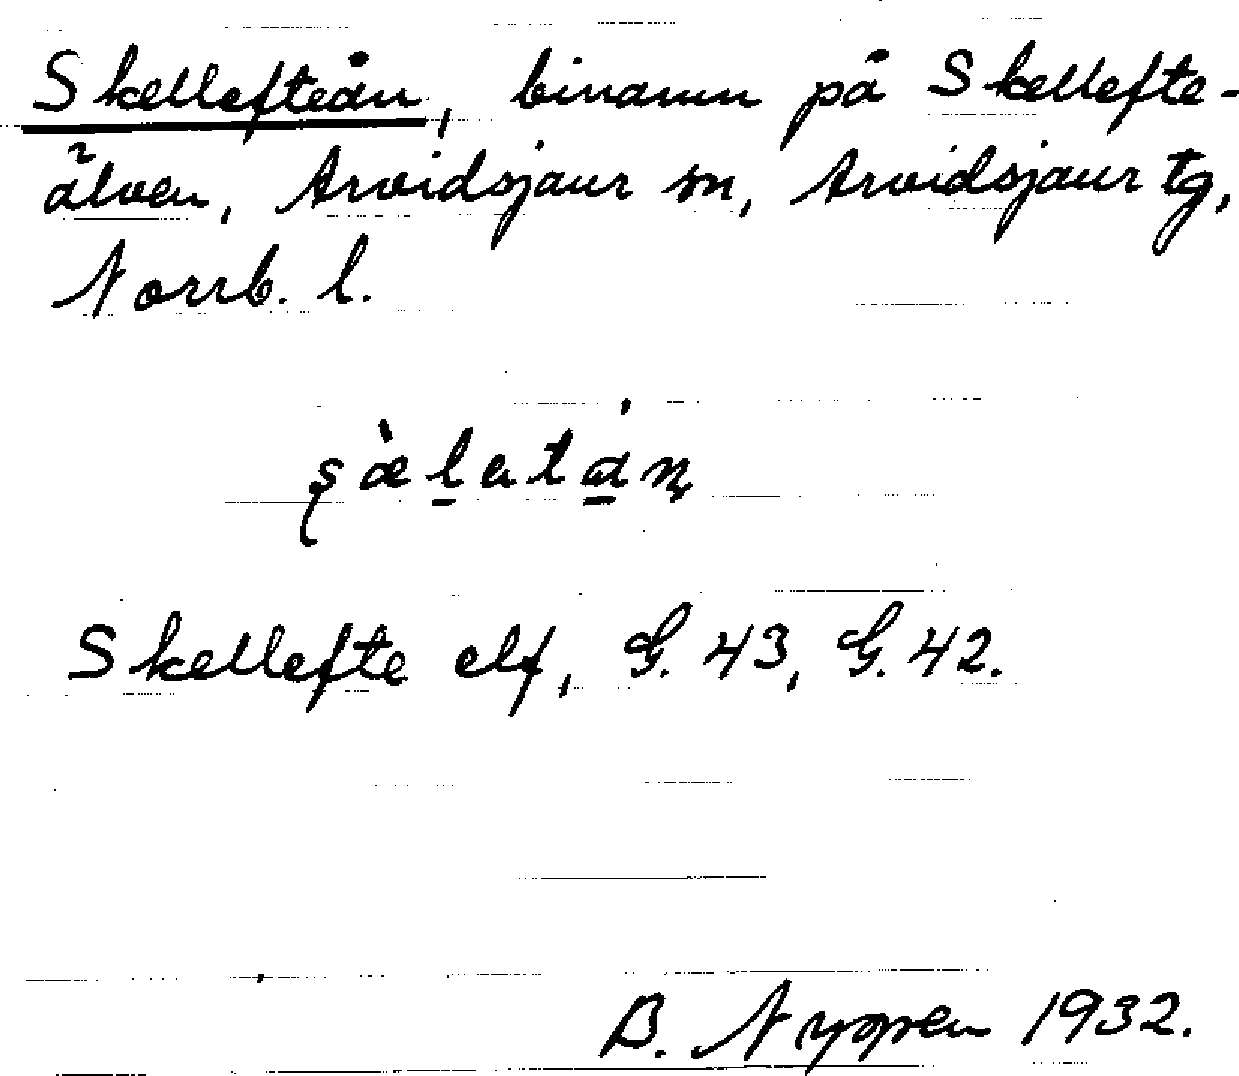 Skellefteån, binamn på Skellefte-
älven, Arvidsjaur sn, Arvidsjaur tg,
Norrb. l.
Skellefte elf, G. 43, G. 42.
B. Nyppen 1932.